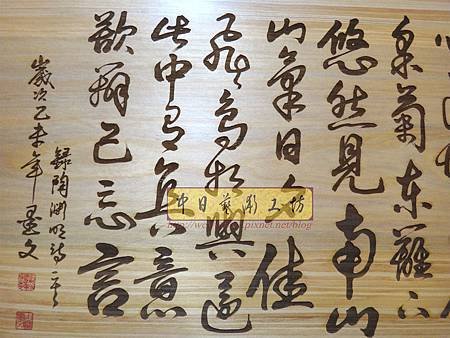 采菊东籬下
悠然見南山
山氣日夕佳
飛鳥相與還
此中有真意
欲辨已忘言
錄陶渊明詩
歲次乙未年墨文
中日藝術工坊
pixnet.net/blog